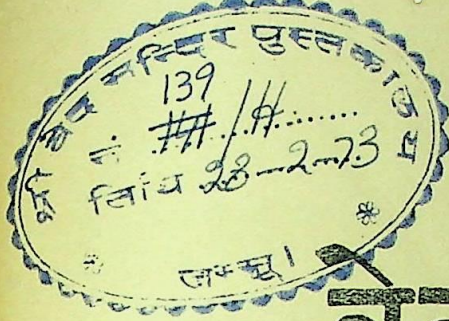 श्री वेद मन्दिर पुस्तकालय
139
नं. /H
तिथि 23-2-73
जम्मू।